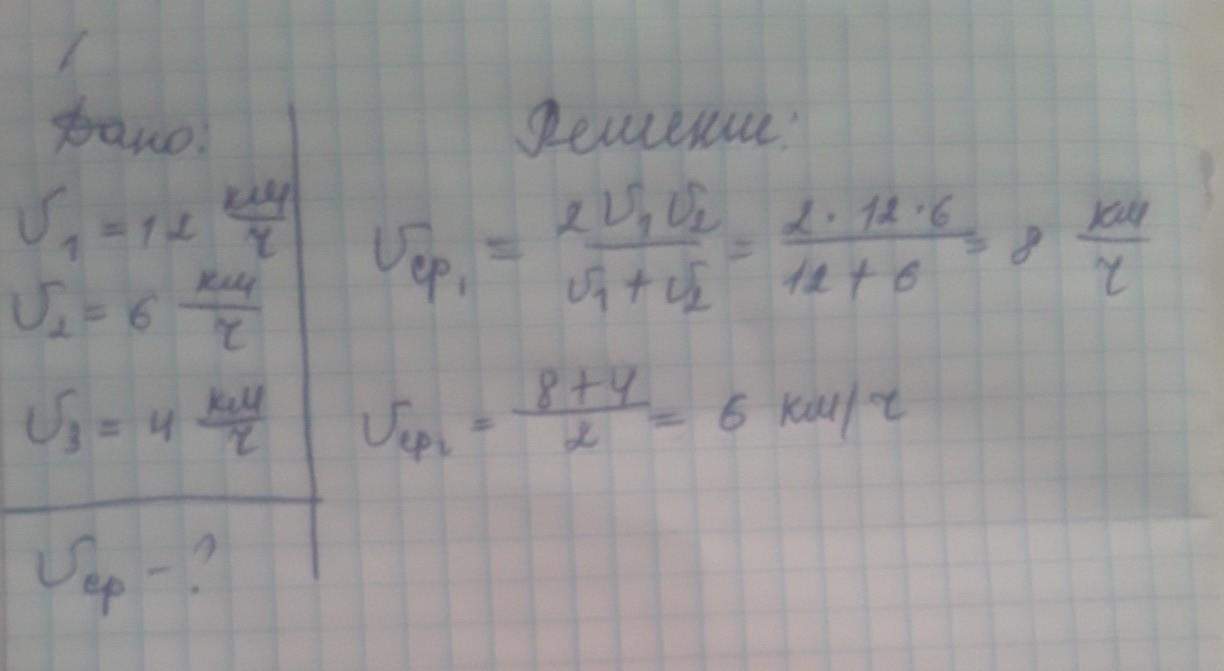 Дано:
υ₁ = 12 км/ч
υ₂ = 6 км/ч
υ₃ = 4 км/ч
υср - ?
Решение:
υср₁ = 2υ₁υ₂/(υ₁+υ₂) = (2·12·6)/(12+6) = 8 км/ч
υср₂ = (8+4)/2 = 6 км/ч